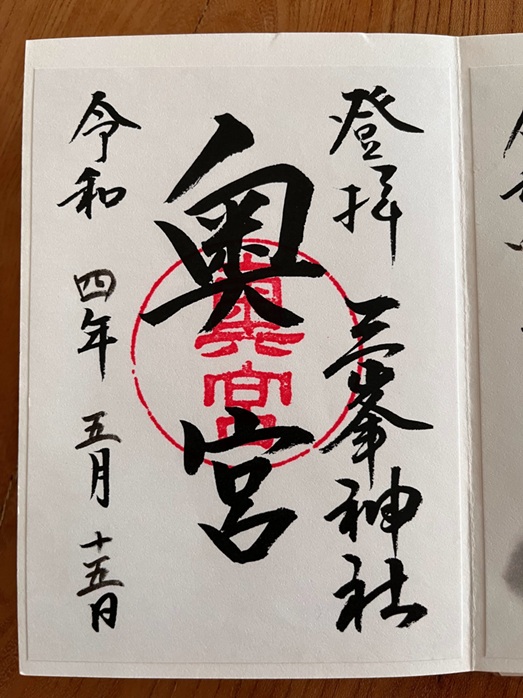 登拝 三峯神社
奥宮
奥宮
令和 四年 五月 十五日